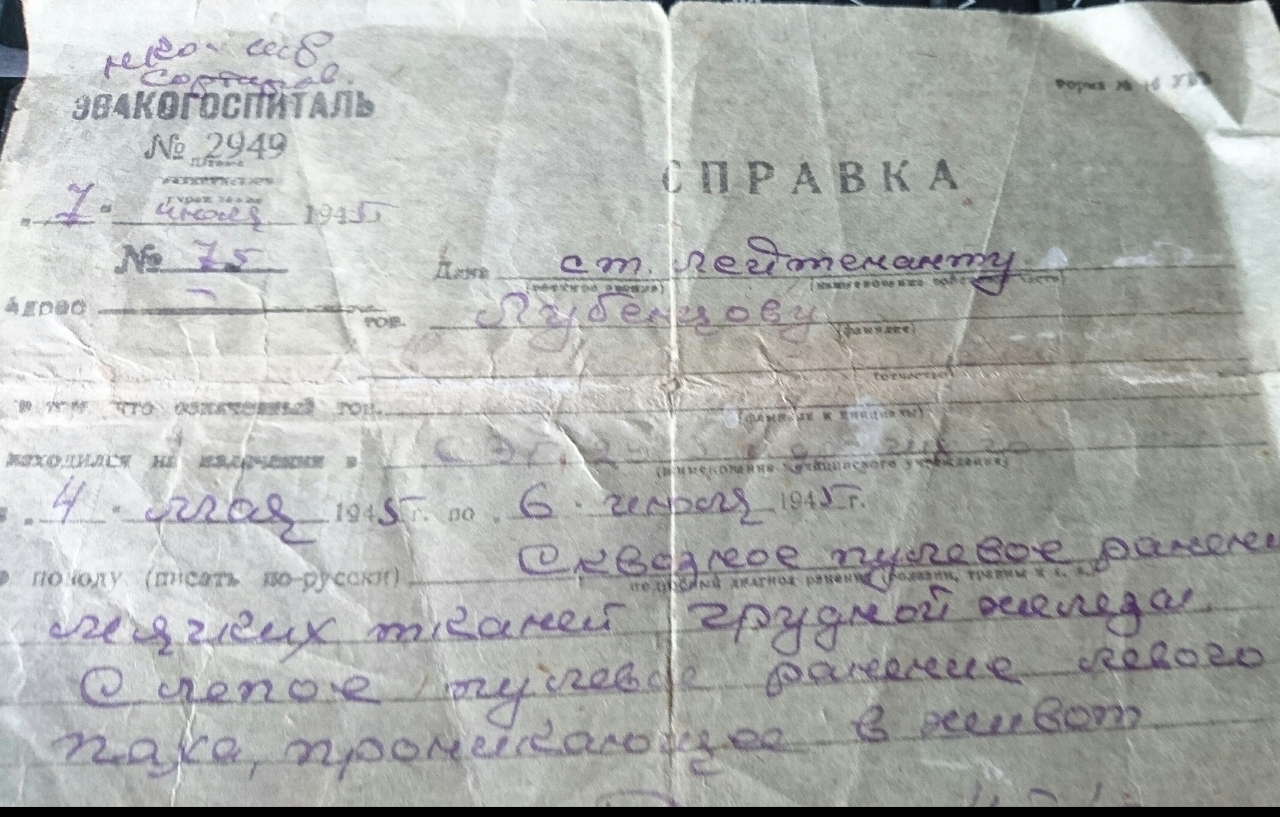 НКО-СССР
Сортиров.
ЭВАКОГОСПИТАЛЬ
№ 2949
Форма № 16
СПРАВКА
„ 7 “ июля 1945
№ 75
Дана ст. лейтенанту
Адрес
(воинское звание) (наименование войсковой части)
тов. Лубенцову
(фамилия)
(отчество)
в том что означенный тов.
(фамилия и инициалы)
находился на излечении в
(наименование медицинского учреждения)
с „ 4 “ мая 1945 г. по „ 6 “ июля 1945 г.
Сквозное пулевое ранени
по поводу (писать по-русски)
подробный диагноз ранения, болезни, травмы и т. д.
мягких тканей грудной железы.
Слепое пулевое ранение левого
паха, проникающее в живот